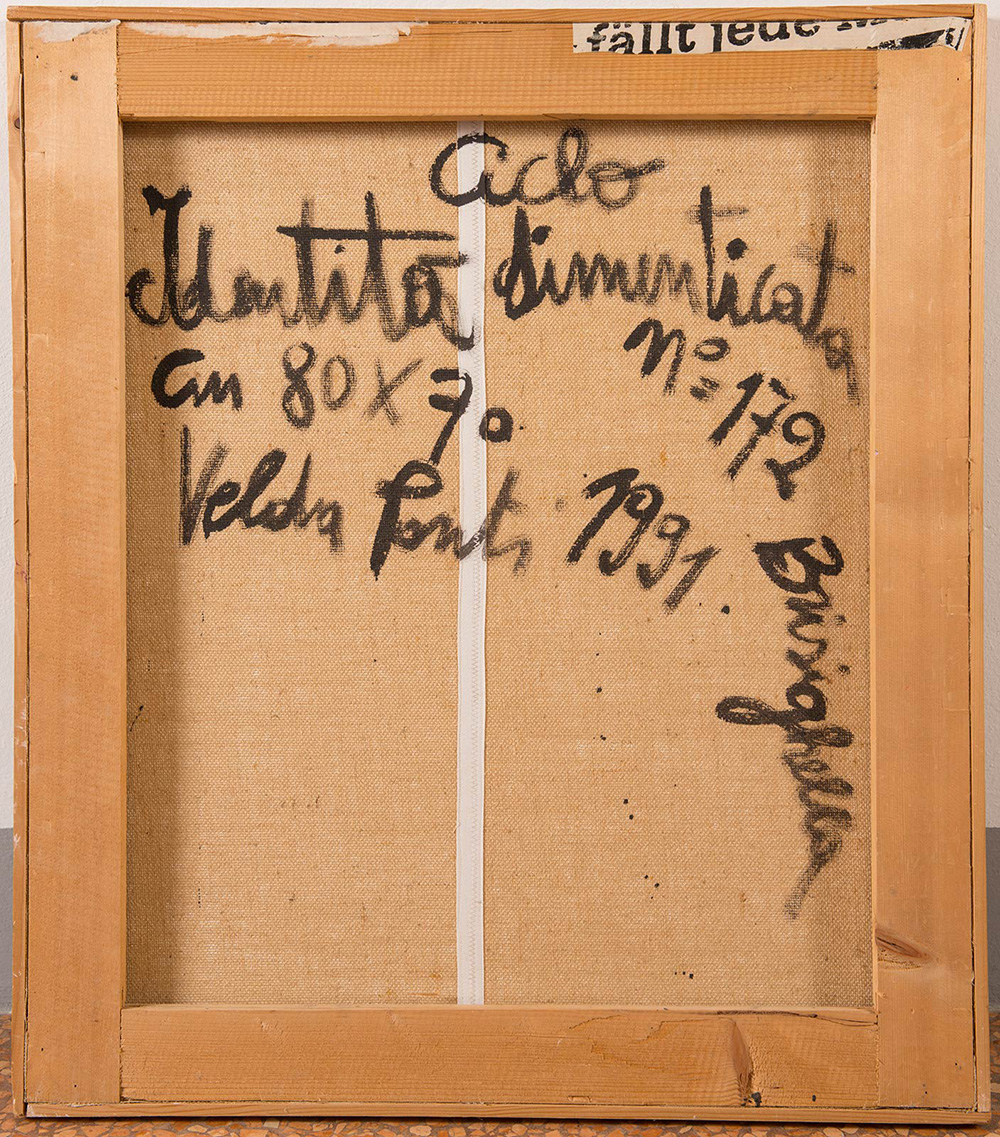 fällt jede
Ciclo
Identità dimenticata
cm 80 x 70
n° 172
Velda Ponti 1991
Brisighella